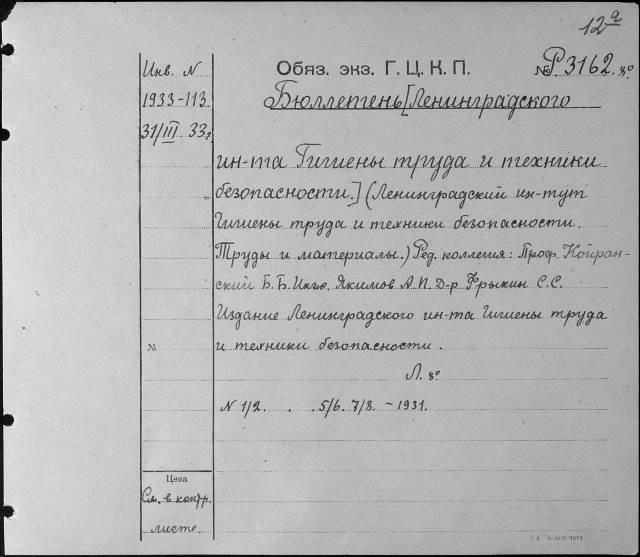 12 а
Инв. N
Обяз. экз. Г. Ц. К. П.
№ Р.3162. 8°
1933-113
Бюллетень [Ленинградского
31/III 33г
ин-та Гигиены труда и техники
безопасности.] (Ленинградский ин-тут
Гигиены труда и техники безопасности.
Труды и материалы.) Ред. коллегия: Проф. Койран-
ский Б.Б. Инж. Якимов А.П. Д-р. Фрыкин С.С.
Издание Ленинградского ин-та Гигиены труда
№
и техники безопасности.
Л. 8°
N 1/2. . . 5/6. 7/8. - 1931.
Цена
См. в контр.
листе.